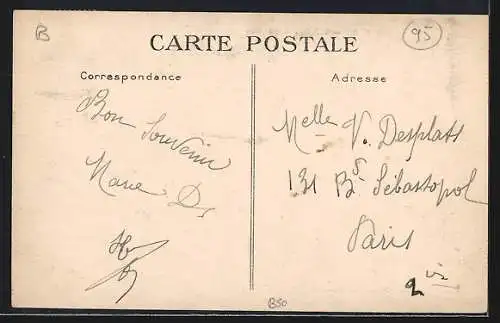 B
95
CARTE POSTALE
Correspondance
Bon Souvenir
Marie D
Adresse
Melle V. Desplats
131 Bd Sébastopol
Paris
2
B50